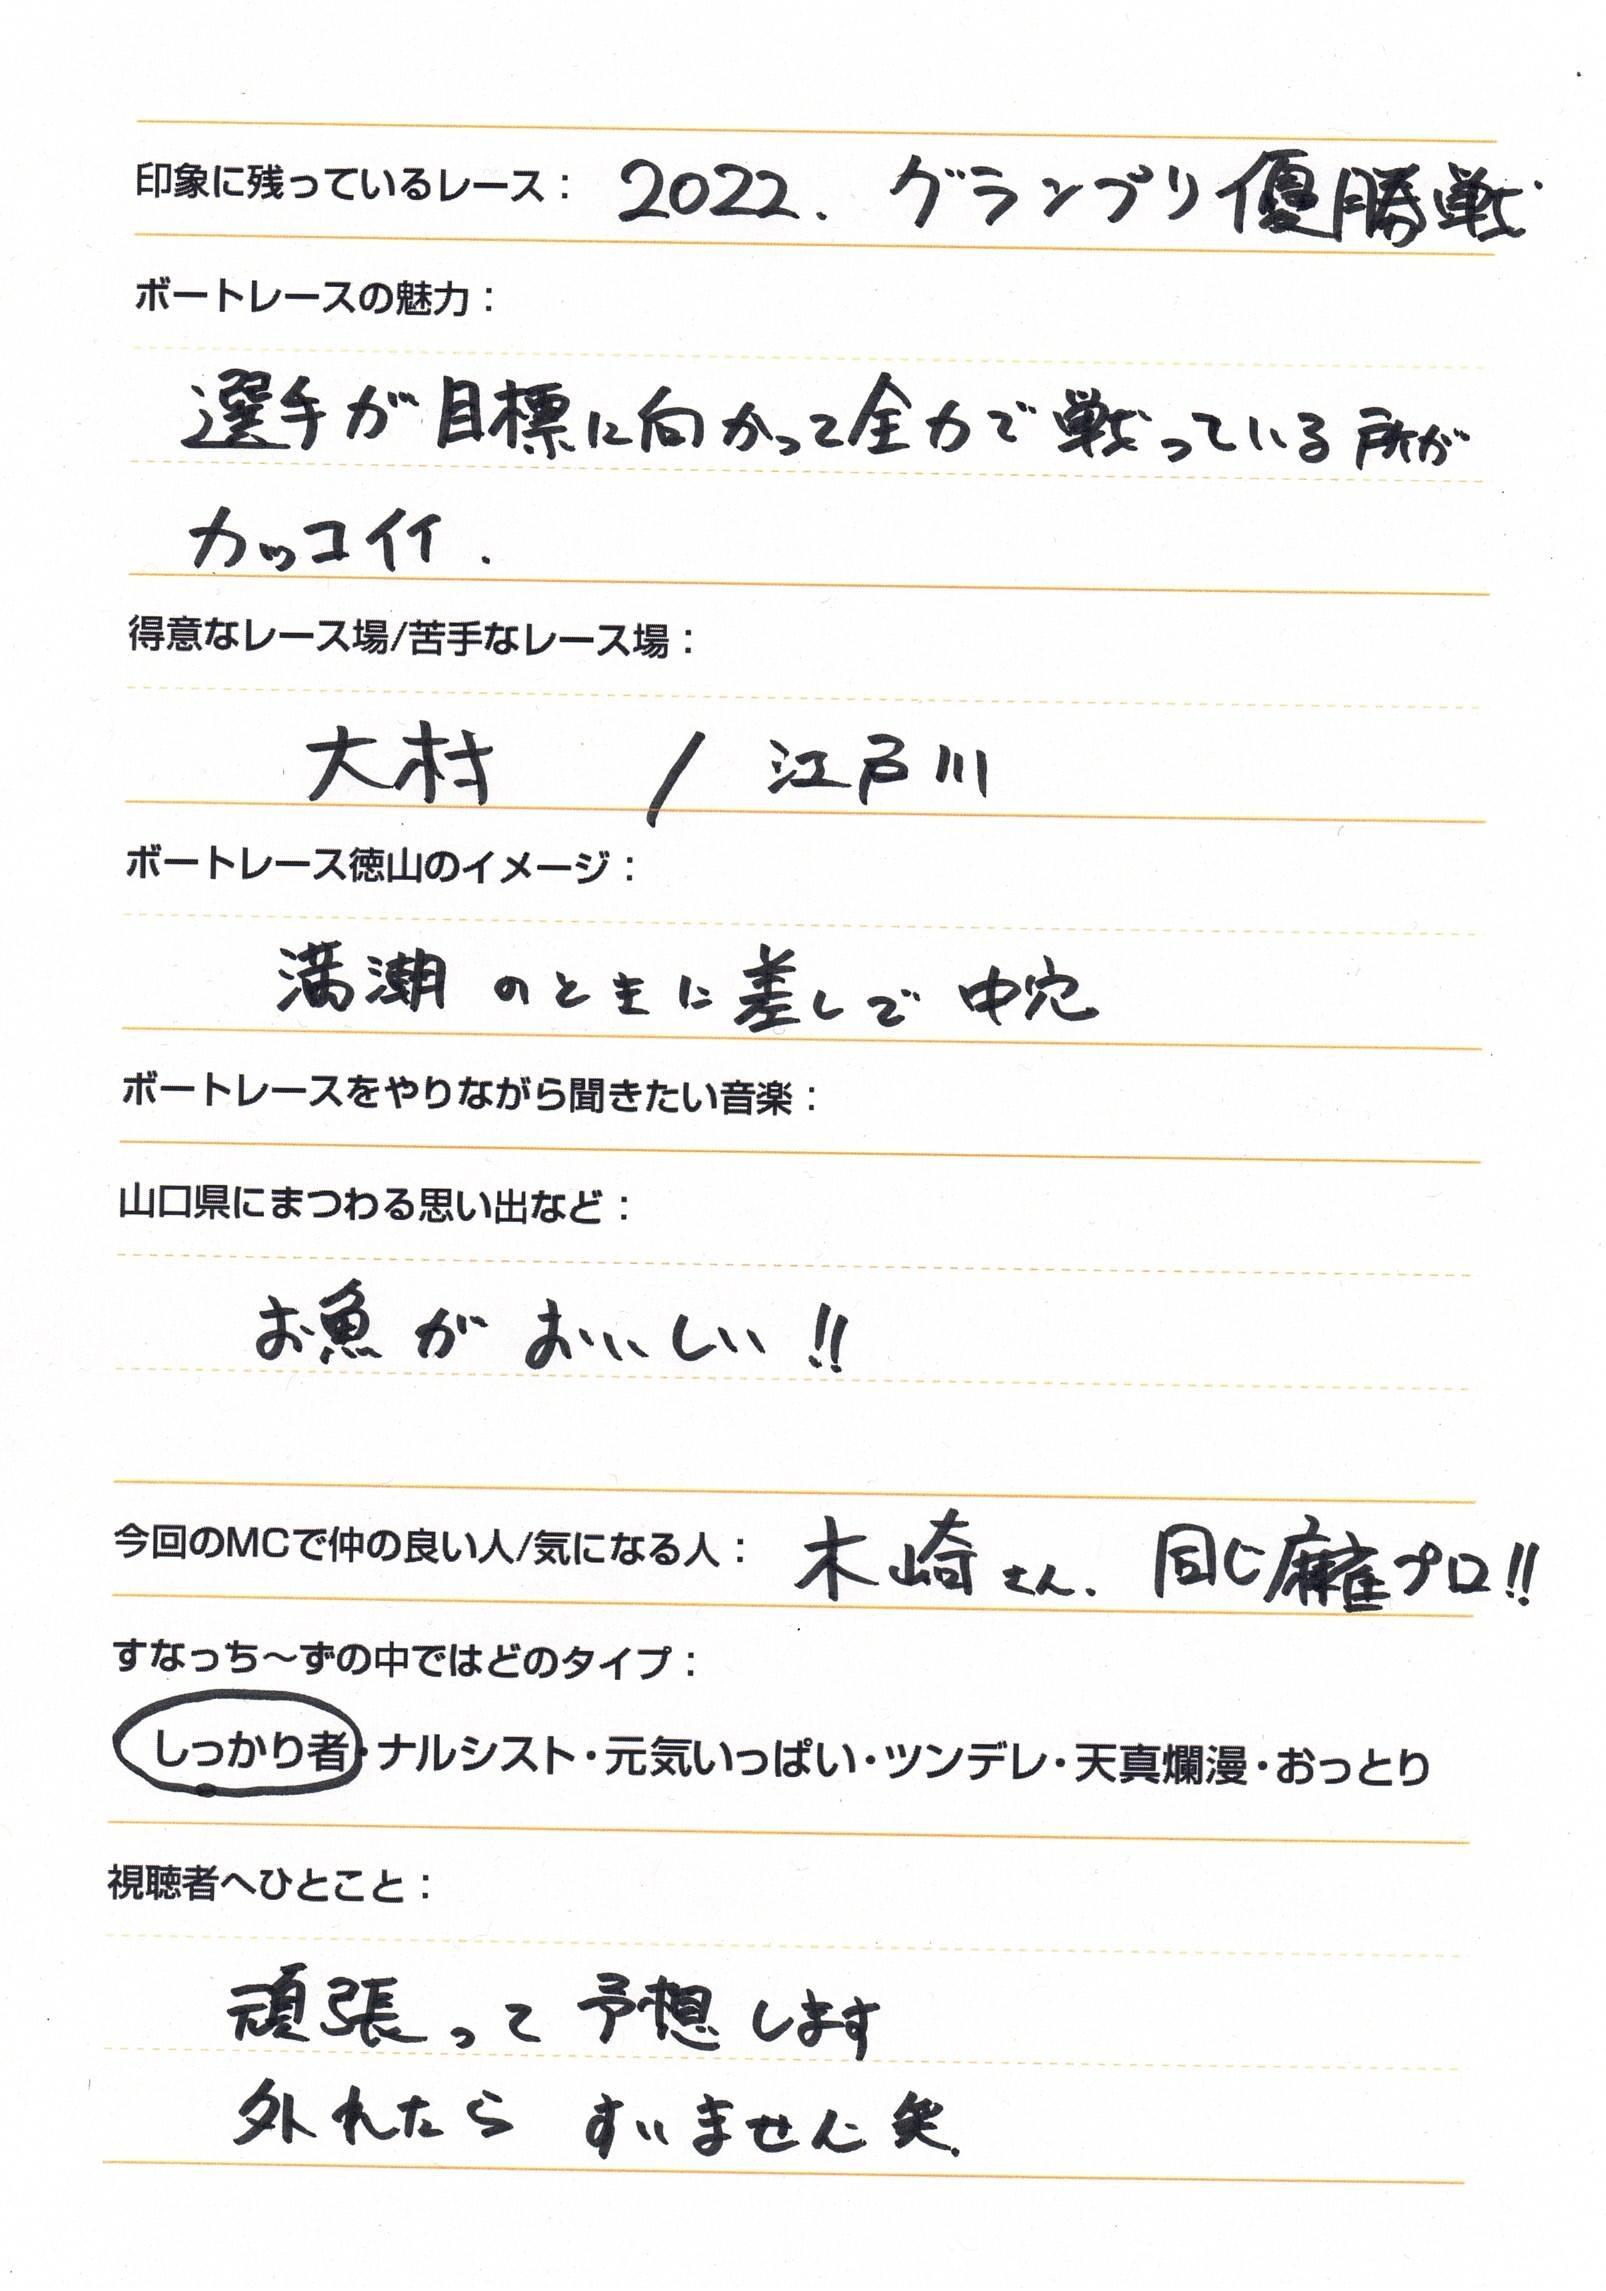 印象に残っているレース： 2022. グランプリ優勝戦
ボートレースの魅力：
選手が目標に向かって全力で戦っている所が
カッコイイ.
得意なレース場/苦手なレース場：
大村 / 江戸川
ボートレース徳山のイメージ：
満潮のときに差しで中穴
ボートレースをやりながら聞きたい音楽：
山口県にまつわる思い出など：
お魚がおいしい!!
今回のMCで仲の良い人/気になる人： 木崎さん. 同じ麻雀プロ!!
すなっち〜ずの中ではどのタイプ：
しっかり者・ナルシスト・元気いっぱい・ツンデレ・天真爛漫・おっとり
視聴者へひとこと：
頑張って予想します
外れたら すいません笑.